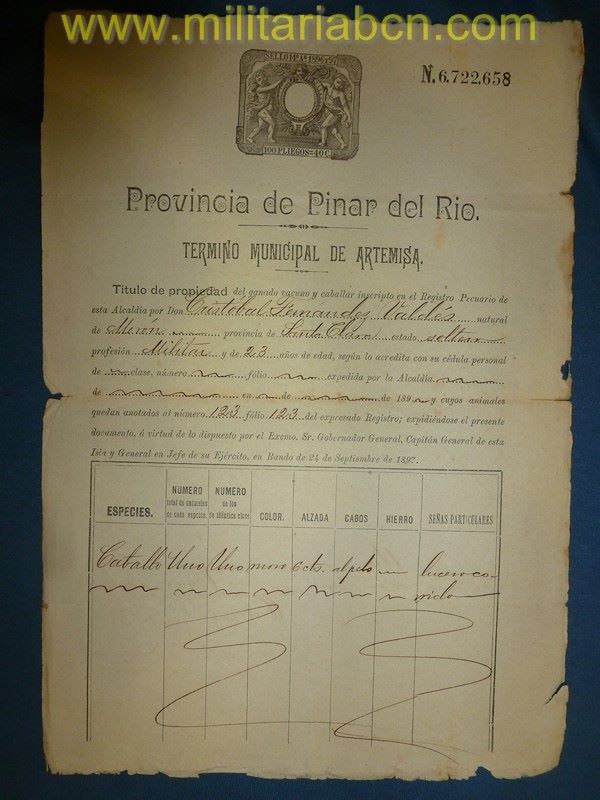 www.militariabcn.com
SELLO 11º Aª 1896 y 97
N. 6.722.658
100 PLIEGOS=40 C
Provincia de Pinar del Rio.
TERMINO MUNICIPAL DE ARTEMISA.
Título de propiedad del ganado vacuno y caballar inscripto en el Registro Pecuario de
esta Alcaldía por Don Cristobal Fernández Valdés natural
de Morón provincia de Santa Clara estado soltero
profesión Militar y de 23 años de edad, según lo acredita con su cédula personal
de clase, número fólio expedida por la Alcaldía
de en de de 189 y cuyos animales
quedan anotados al número 123 fólio 123 del expresado Registro; expidiéndose el presente
documento, á virtud de lo dispuesto por el Excmo. Sr. Gobernador General, Capitán General de esta
Isla y General en Jefe de su Ejército, en Bando de 24 de Septiembre de 1897.
ESPECIES. NÚMERO total de animales de cada especie. NÚMERO de los de idéntica clase COLOR. ALZADA CABOS HIERRO SEÑAS PARTICULARES
Caballo Uno Uno moro 6 cts. al pelo lucero co-
rrido